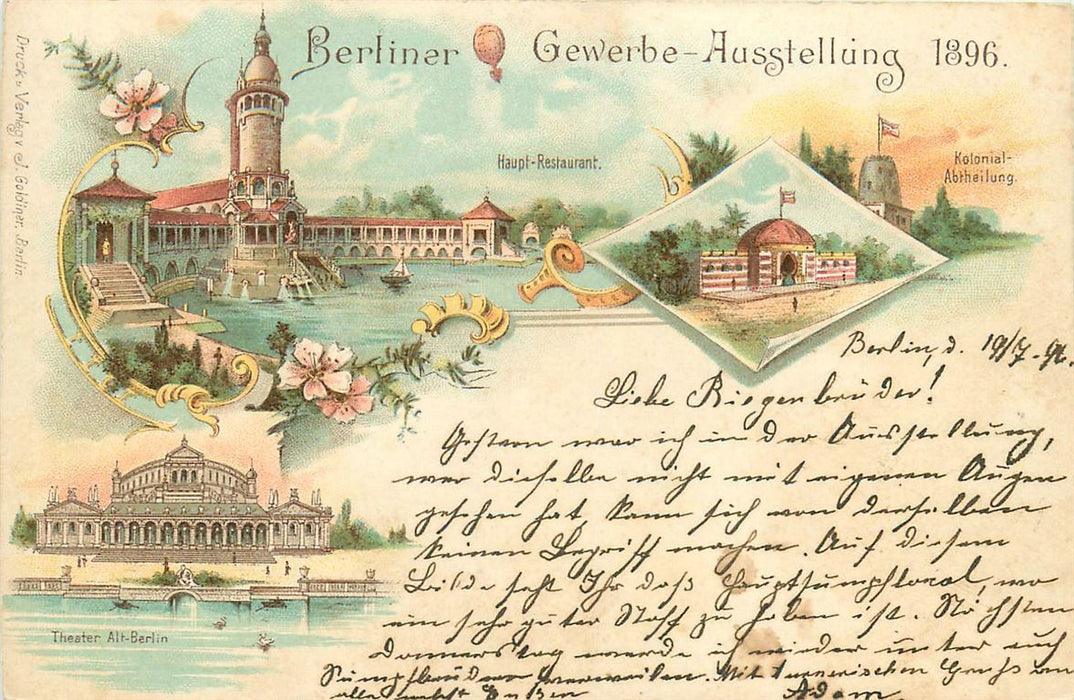 Berliner Gewerbe-Ausstellung 1896.
Druck u. Verlag v. J. Goldiner, Berlin.
Haupt-Restaurant.
Kolonial-
Abtheilung.
Theater Alt-Berlin
Berlin, d. 19/7.96.
Liebe Riegenbrüder!
Gestern war ich in der Ausstellung,
wer dieselbe nicht mit eigenen Augen
gesehen hat, kann sich von derselben
keinen Begriff machen. Auf diesem
Bilde seht Ihr das Hauptsumpflocal, wo
ein sehr guter Stoff zu haben ist. Nächsten
Donnerstag werde ich wieder unter euch
Sumpfbrüdern verweilen. Mit turnerischem Gruß an
alle nebst
Adam